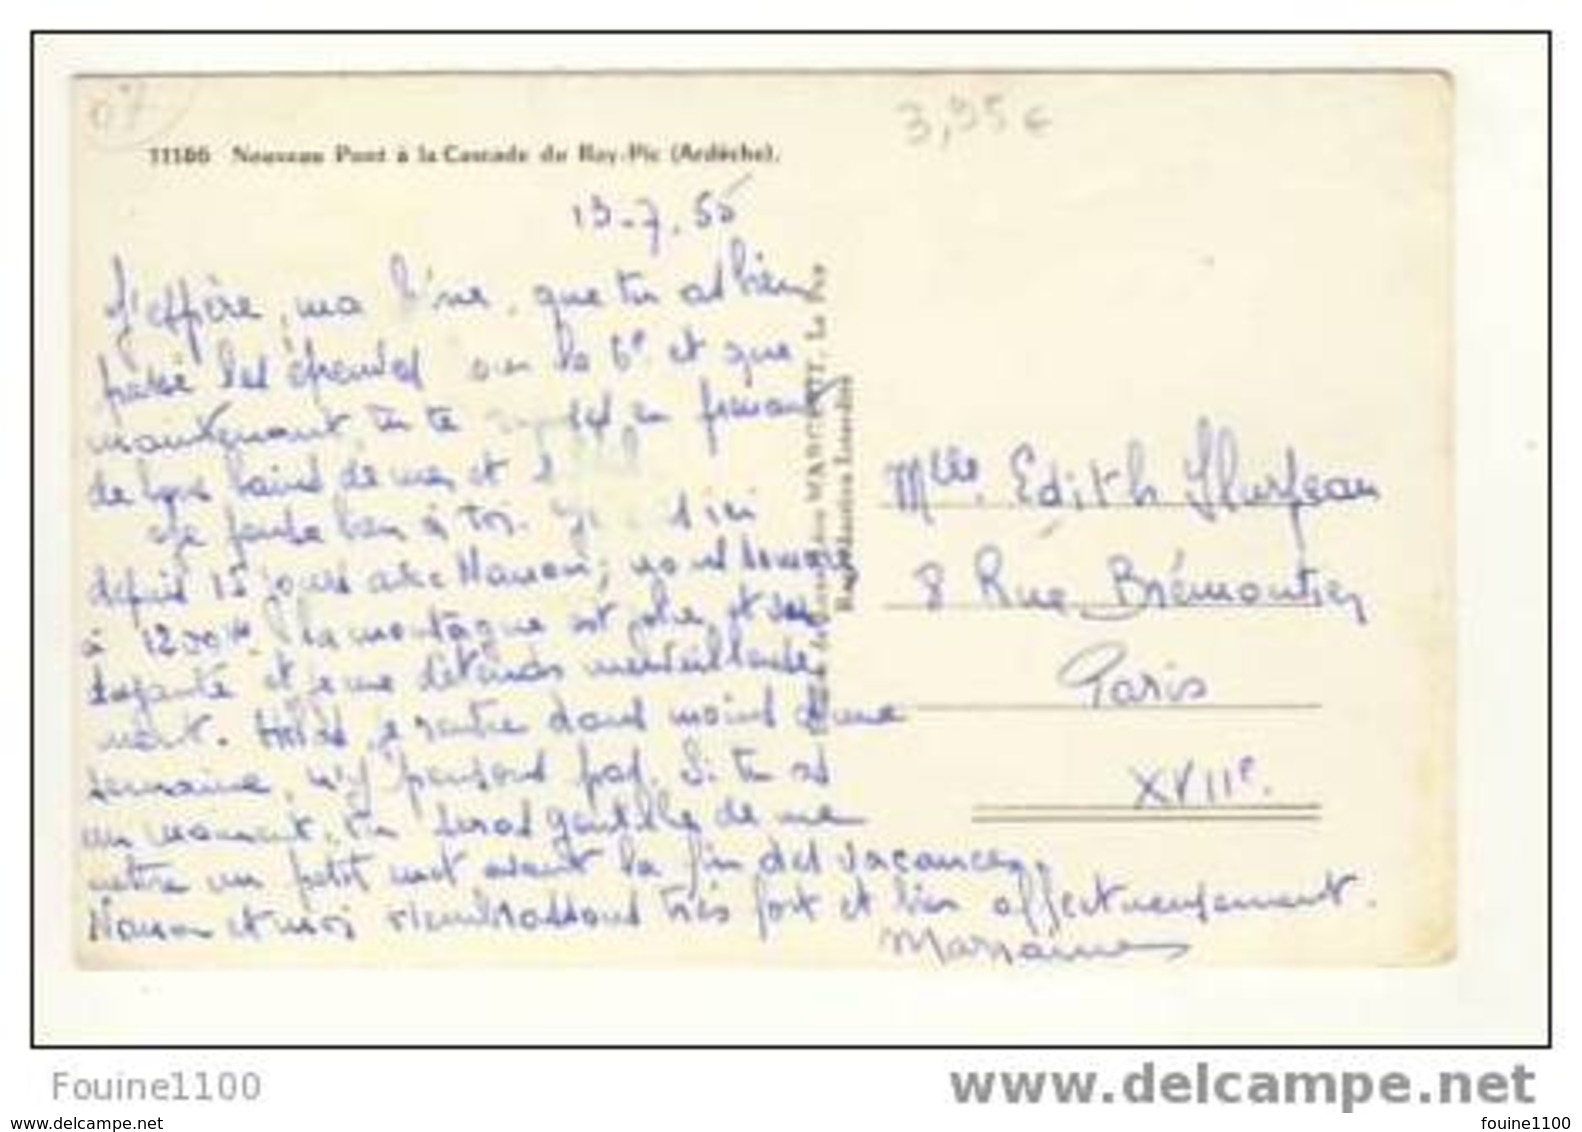 07
3,95 €
11186 Nouveau Pont à la Cascade du Ray-Pic (Ardèche).
13-7.55
J'espère, ma, que tu as bien
passé les épreuves sur la 6e et que
maintenant, tu te en prenant
de bons bains de mer et
Je pense bien à toi. ici
depuis 15 jours avec Nanon; nous sommes
à 1200 m. la montagne est jolie et
et je me détends merveilleuse
ment. Hélas je rentre dans moins d'une
semaine, n'y pensons pas. Si tu as
un moment, tu seras gentille de me
mettre un petit mot avant la fin des vacances.
Nanon et moi t'embrassons très fort et bien affectueusement.
Marraine
Reproduction Interdite
Mlle. Edith
8 Rue Brémontier
Paris
XVIIe.
Fouine1100
www.delcampe.net
www.delcampe.net
fouine1100